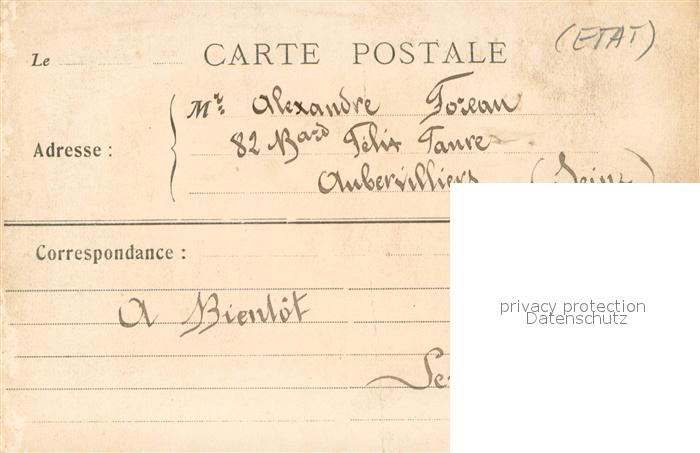 (ETAT)
Le CARTE POSTALE
Mr. Alexandre Foreau
Adresse :
82 Bard Félix Faure
Aubervilliers (Seine)
Correspondance :
privacy protection
Datenschutz
A Bientôt